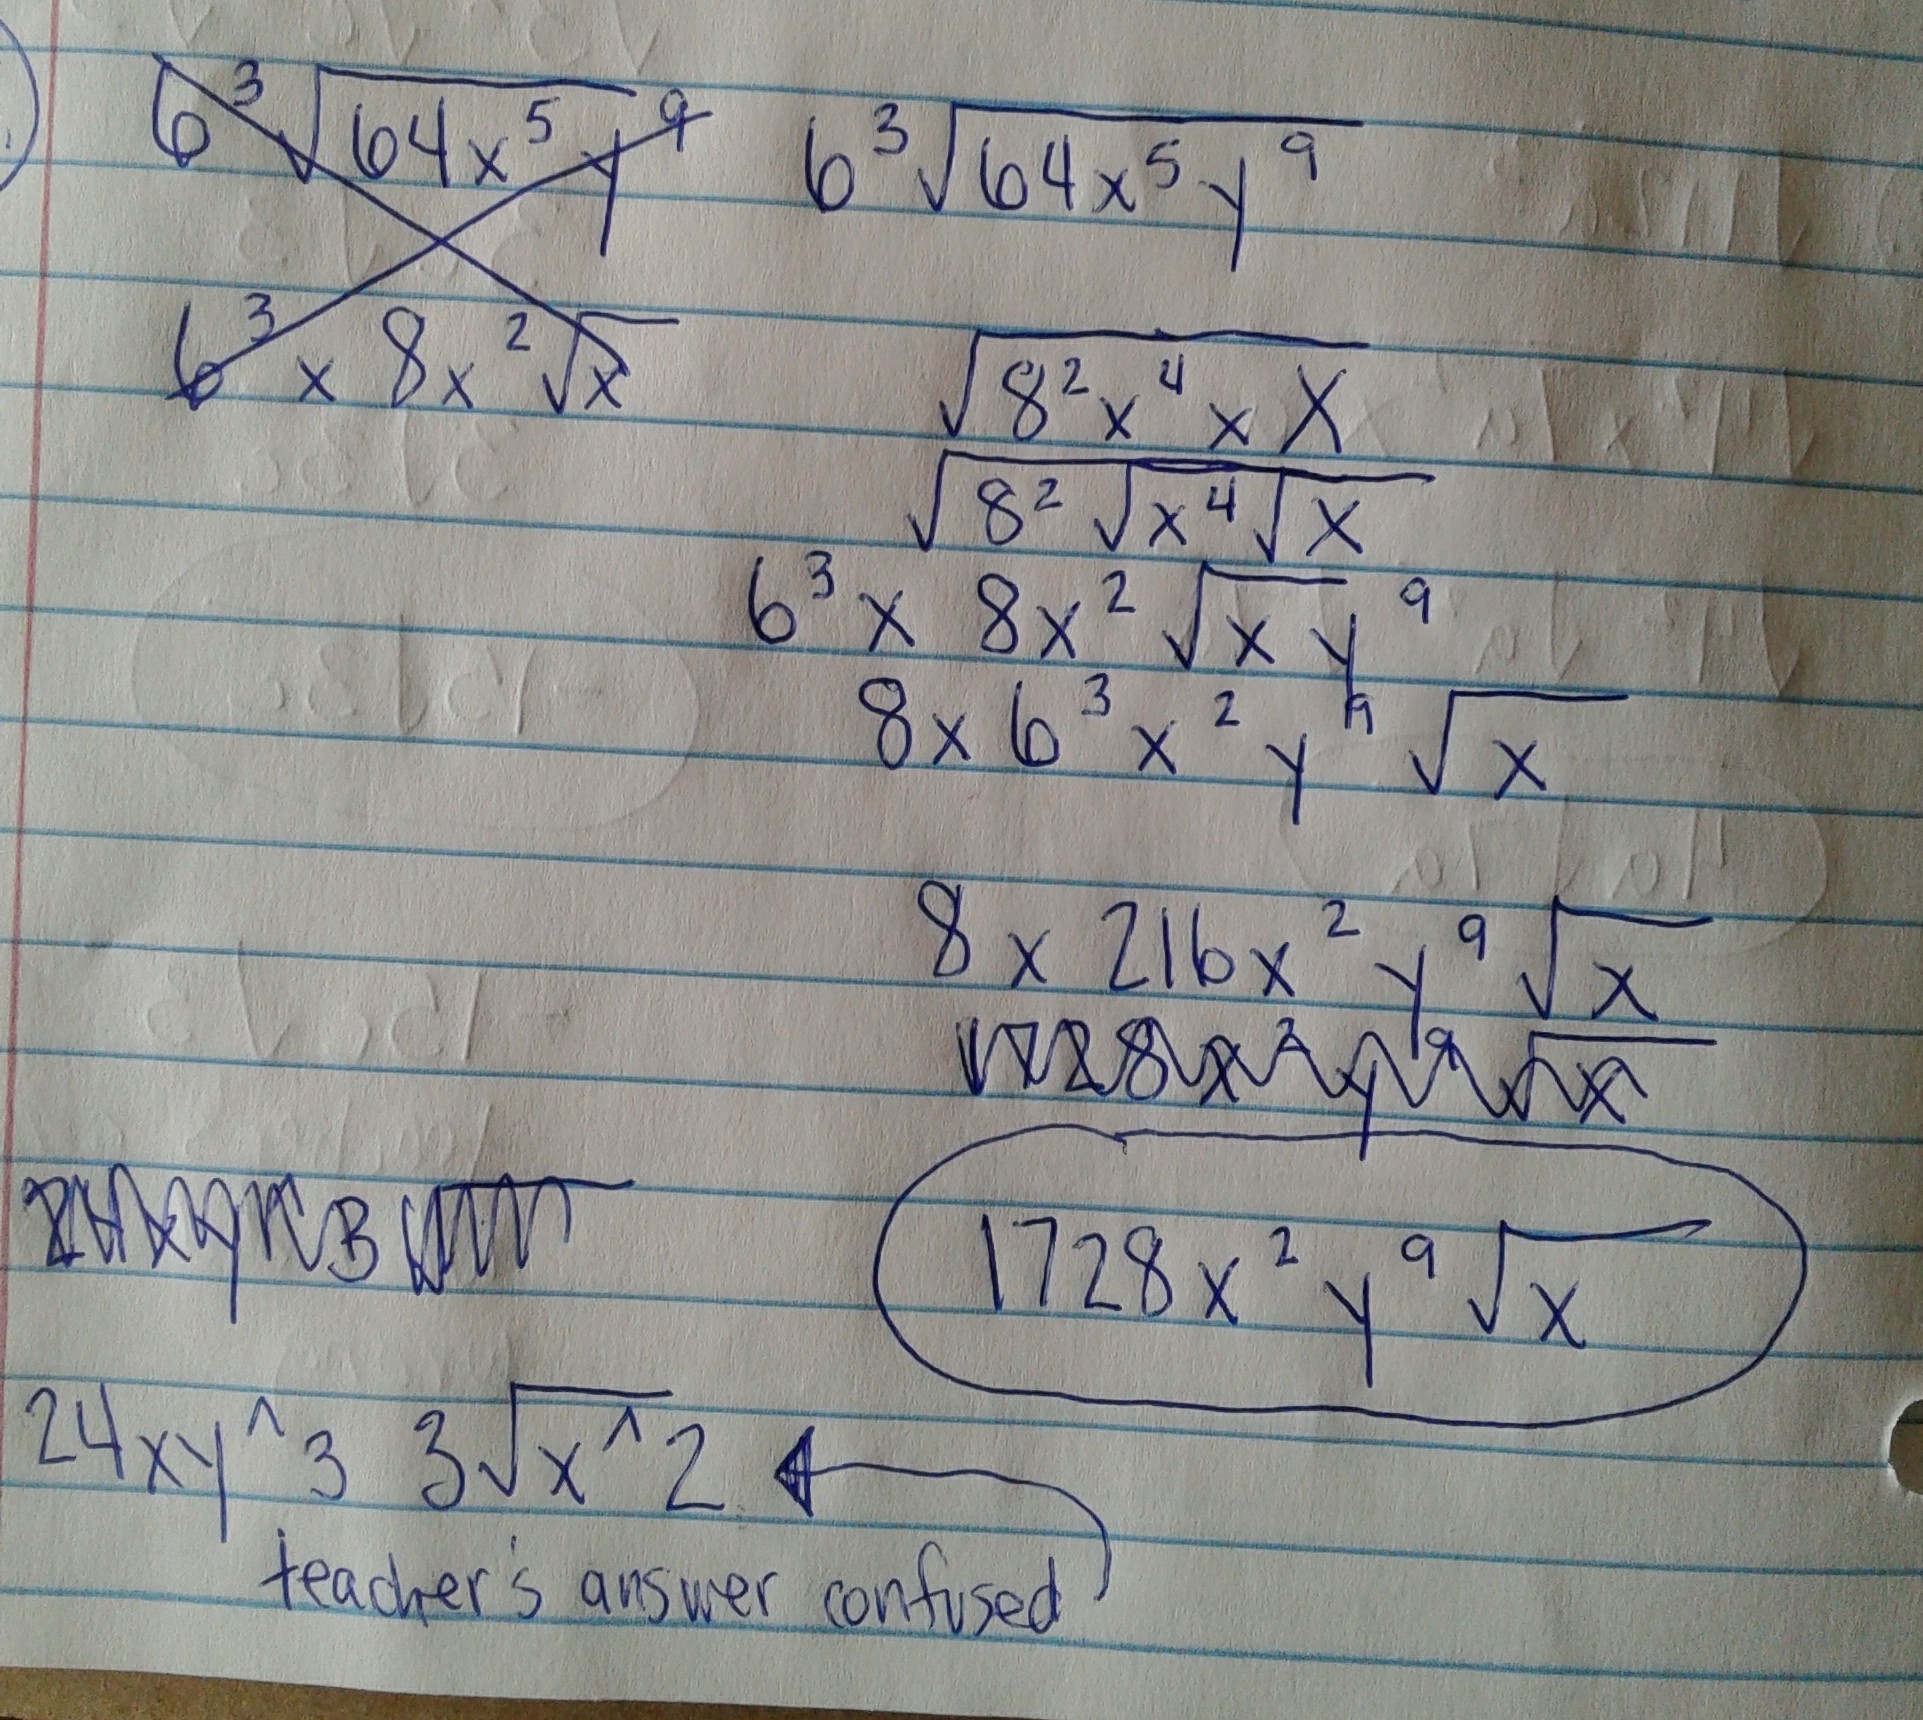 6³√64x⁵y⁹
6³ x 8x²√x
6³√64x⁵y⁹
√8²x⁴ x X
√8² √x⁴ √x
6³ x 8x² √x y⁹
8 x 6³ x² y⁹ √x
8 x 216x² y⁹ √x
1728x² y⁹ √x
1728x² y⁹ √x
24xy^3 3√x^2
teacher's answer confused